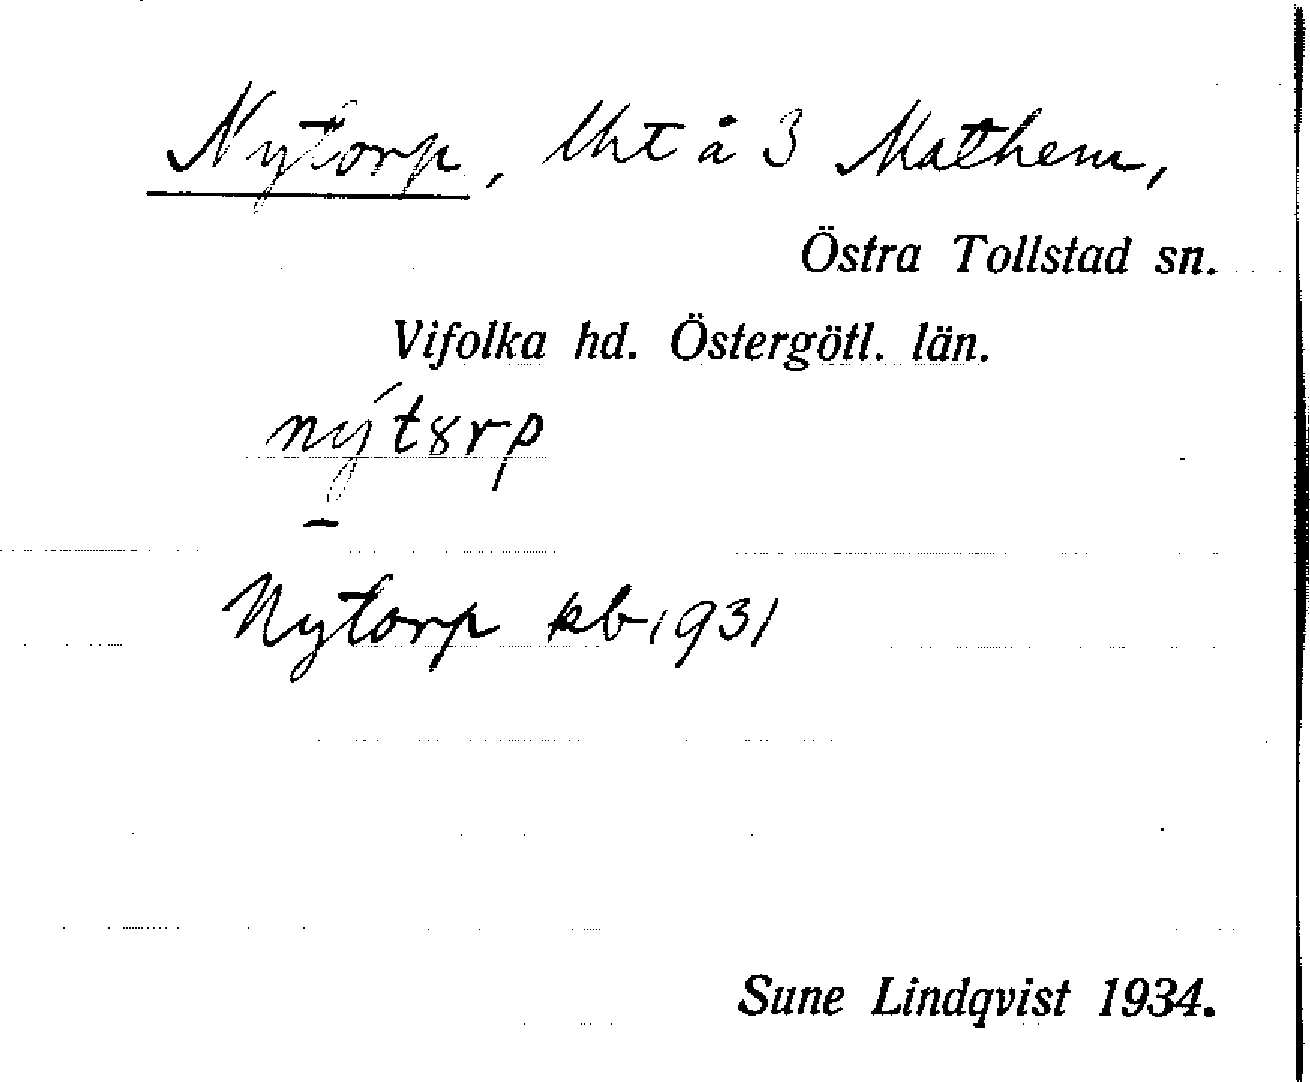 Nytorp, lht å 3 Mathem,
Östra Tollstad sn.
Vifolka hd. Östergötl. län.
nýtȣrp
Nytorp kb 1931
Sune Lindqvist 1934.